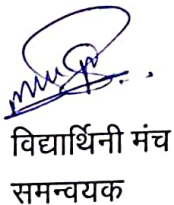 विद्यार्थिनी मंच
समन्वयक